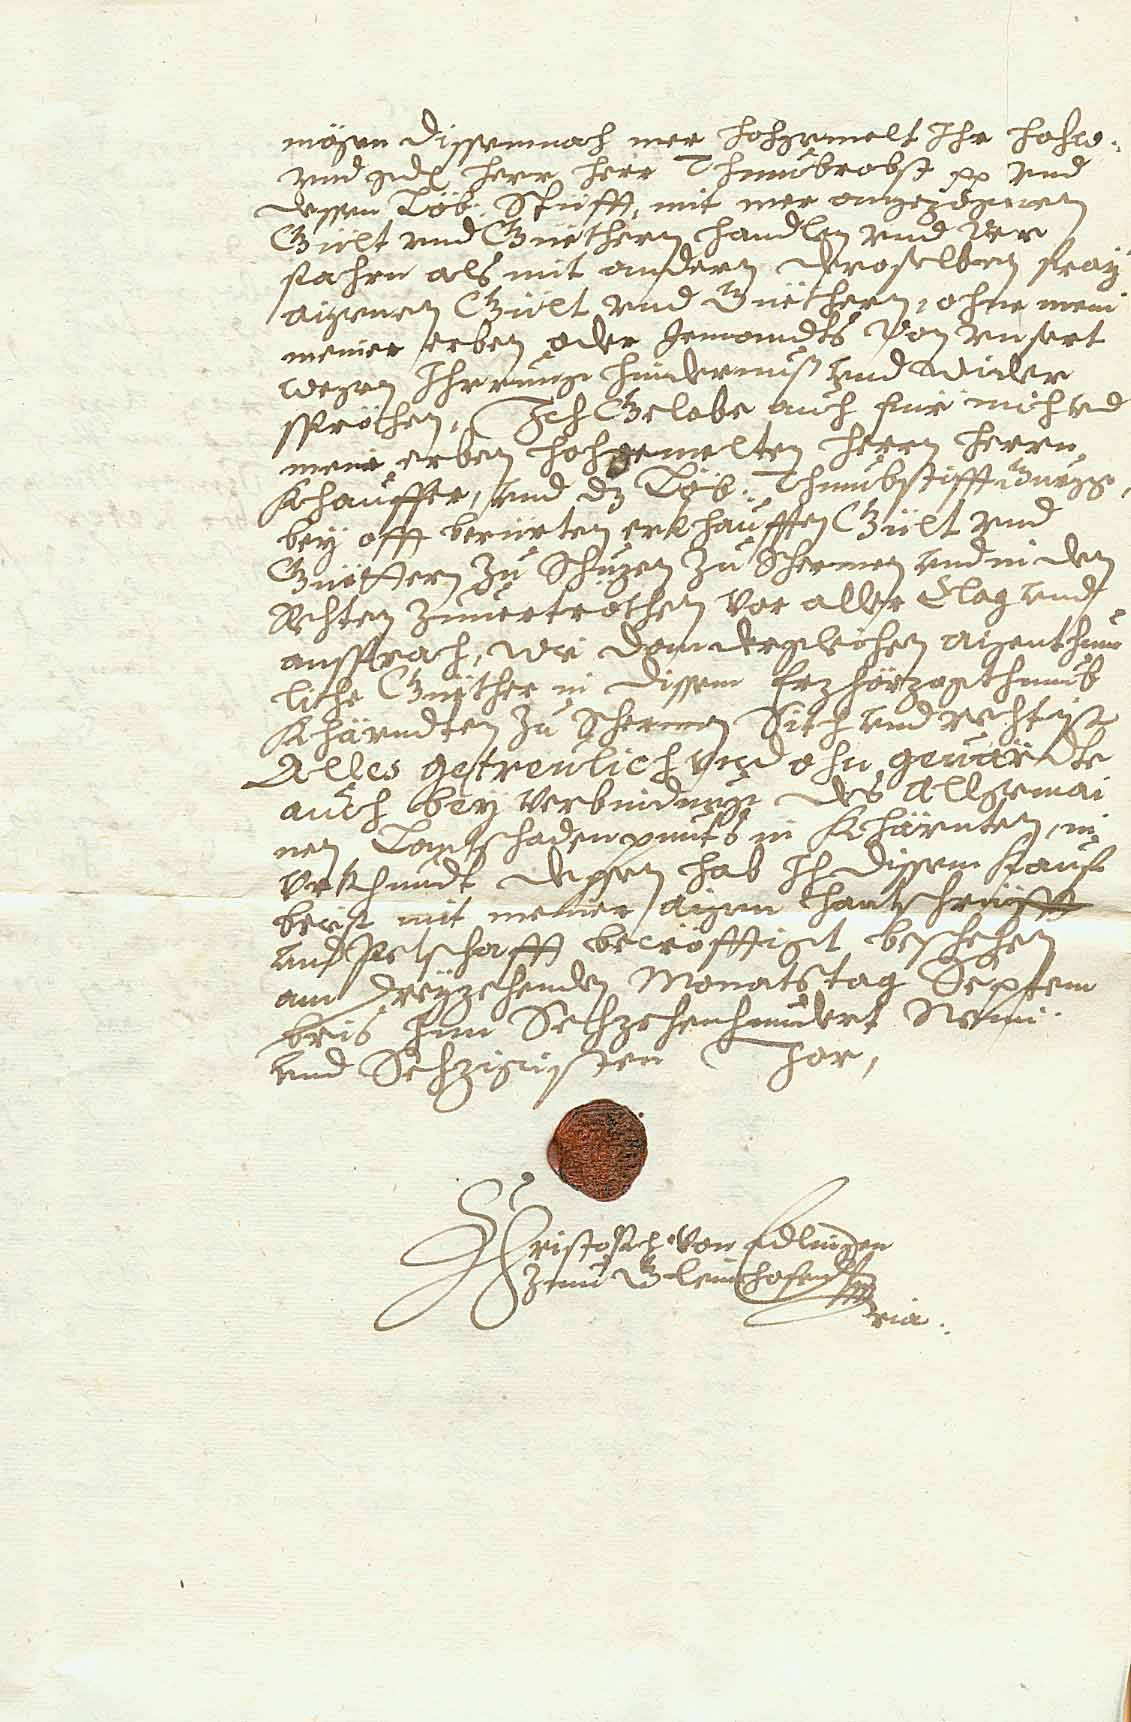 mögen dissemnach mer hochgemelt Ihr hochw:
vnd gdl herr herr Thumbrobst pp vnd
dessen Löb: Stüfft, mit mer angezognen
Gült vnd Güethern handlen vnd ver
fahrn als mit andern deroselben frey
aignen Gült vnd Güethern, ohne mein
meiner erben oder Jemandts von vnsert
wegen Ihrrung hindernuß vnd wider
spröchen, Ich Gelobe auch für mich vnd
meine erben hochgemelten herrn herrn
Khauffer, vnd dz Löb: Thumbstifft Gurgg,
bey offt berürten erkhaufften Gült vnd
Güettern zu Schuzen zu Schermen vnd in den
Rechten zuuertrötten vor aller Clag vnd
ansprach, wie dan dergleichen aigenthum
liche Güether in dissem Erzhörzogthumb
Khärndten zu Schermen Sit vnd recht ist
Alles getreulich vnd ohn geuärdte
auch bey Verbindung des Allgemai
nen Landtschadenpunts in Khärnten, in
Vrkhundt dessen hab Ich dissem Kauf
brief mit meiner aigen handtschrüfft
vnd Petschafft becröfftigt beschehen
am dreyzehenden Monatstag Septem
bris Im Sechzehenhundert Neun
vnd Sechzigisten Jhar,
Christoph von Edlingen
zum Gleinhofen
mria.